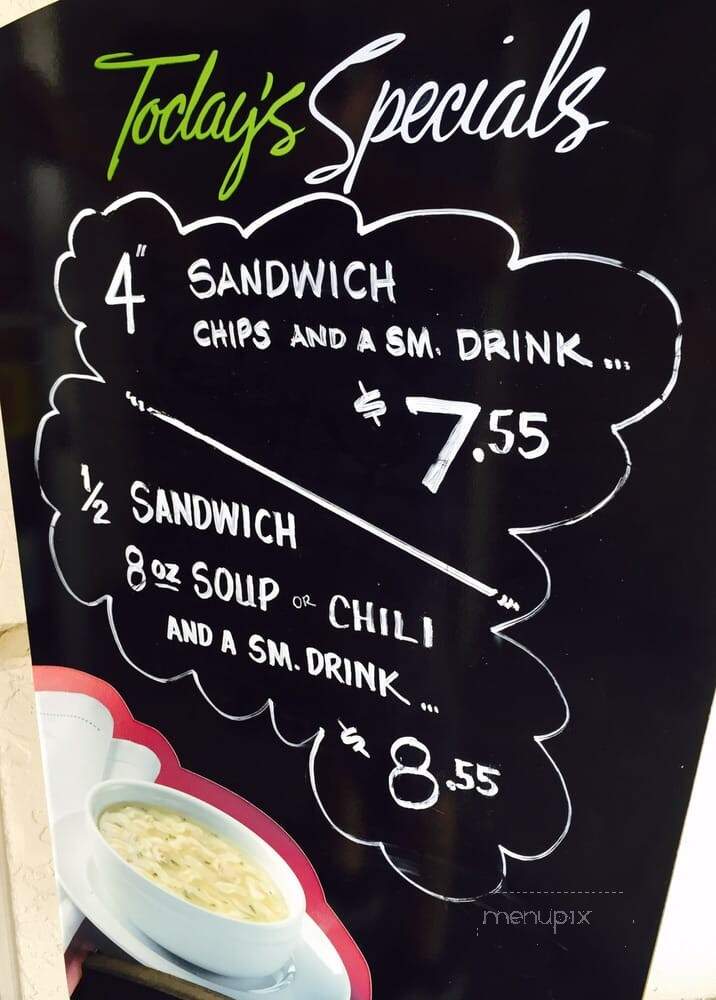 Today's Specials
4" SANDWICH
CHIPS AND A SM. DRINK...
$7.55
1/2 SANDWICH
8oz SOUP OR CHILI
AND A SM. DRINK...
$8.55
menupix